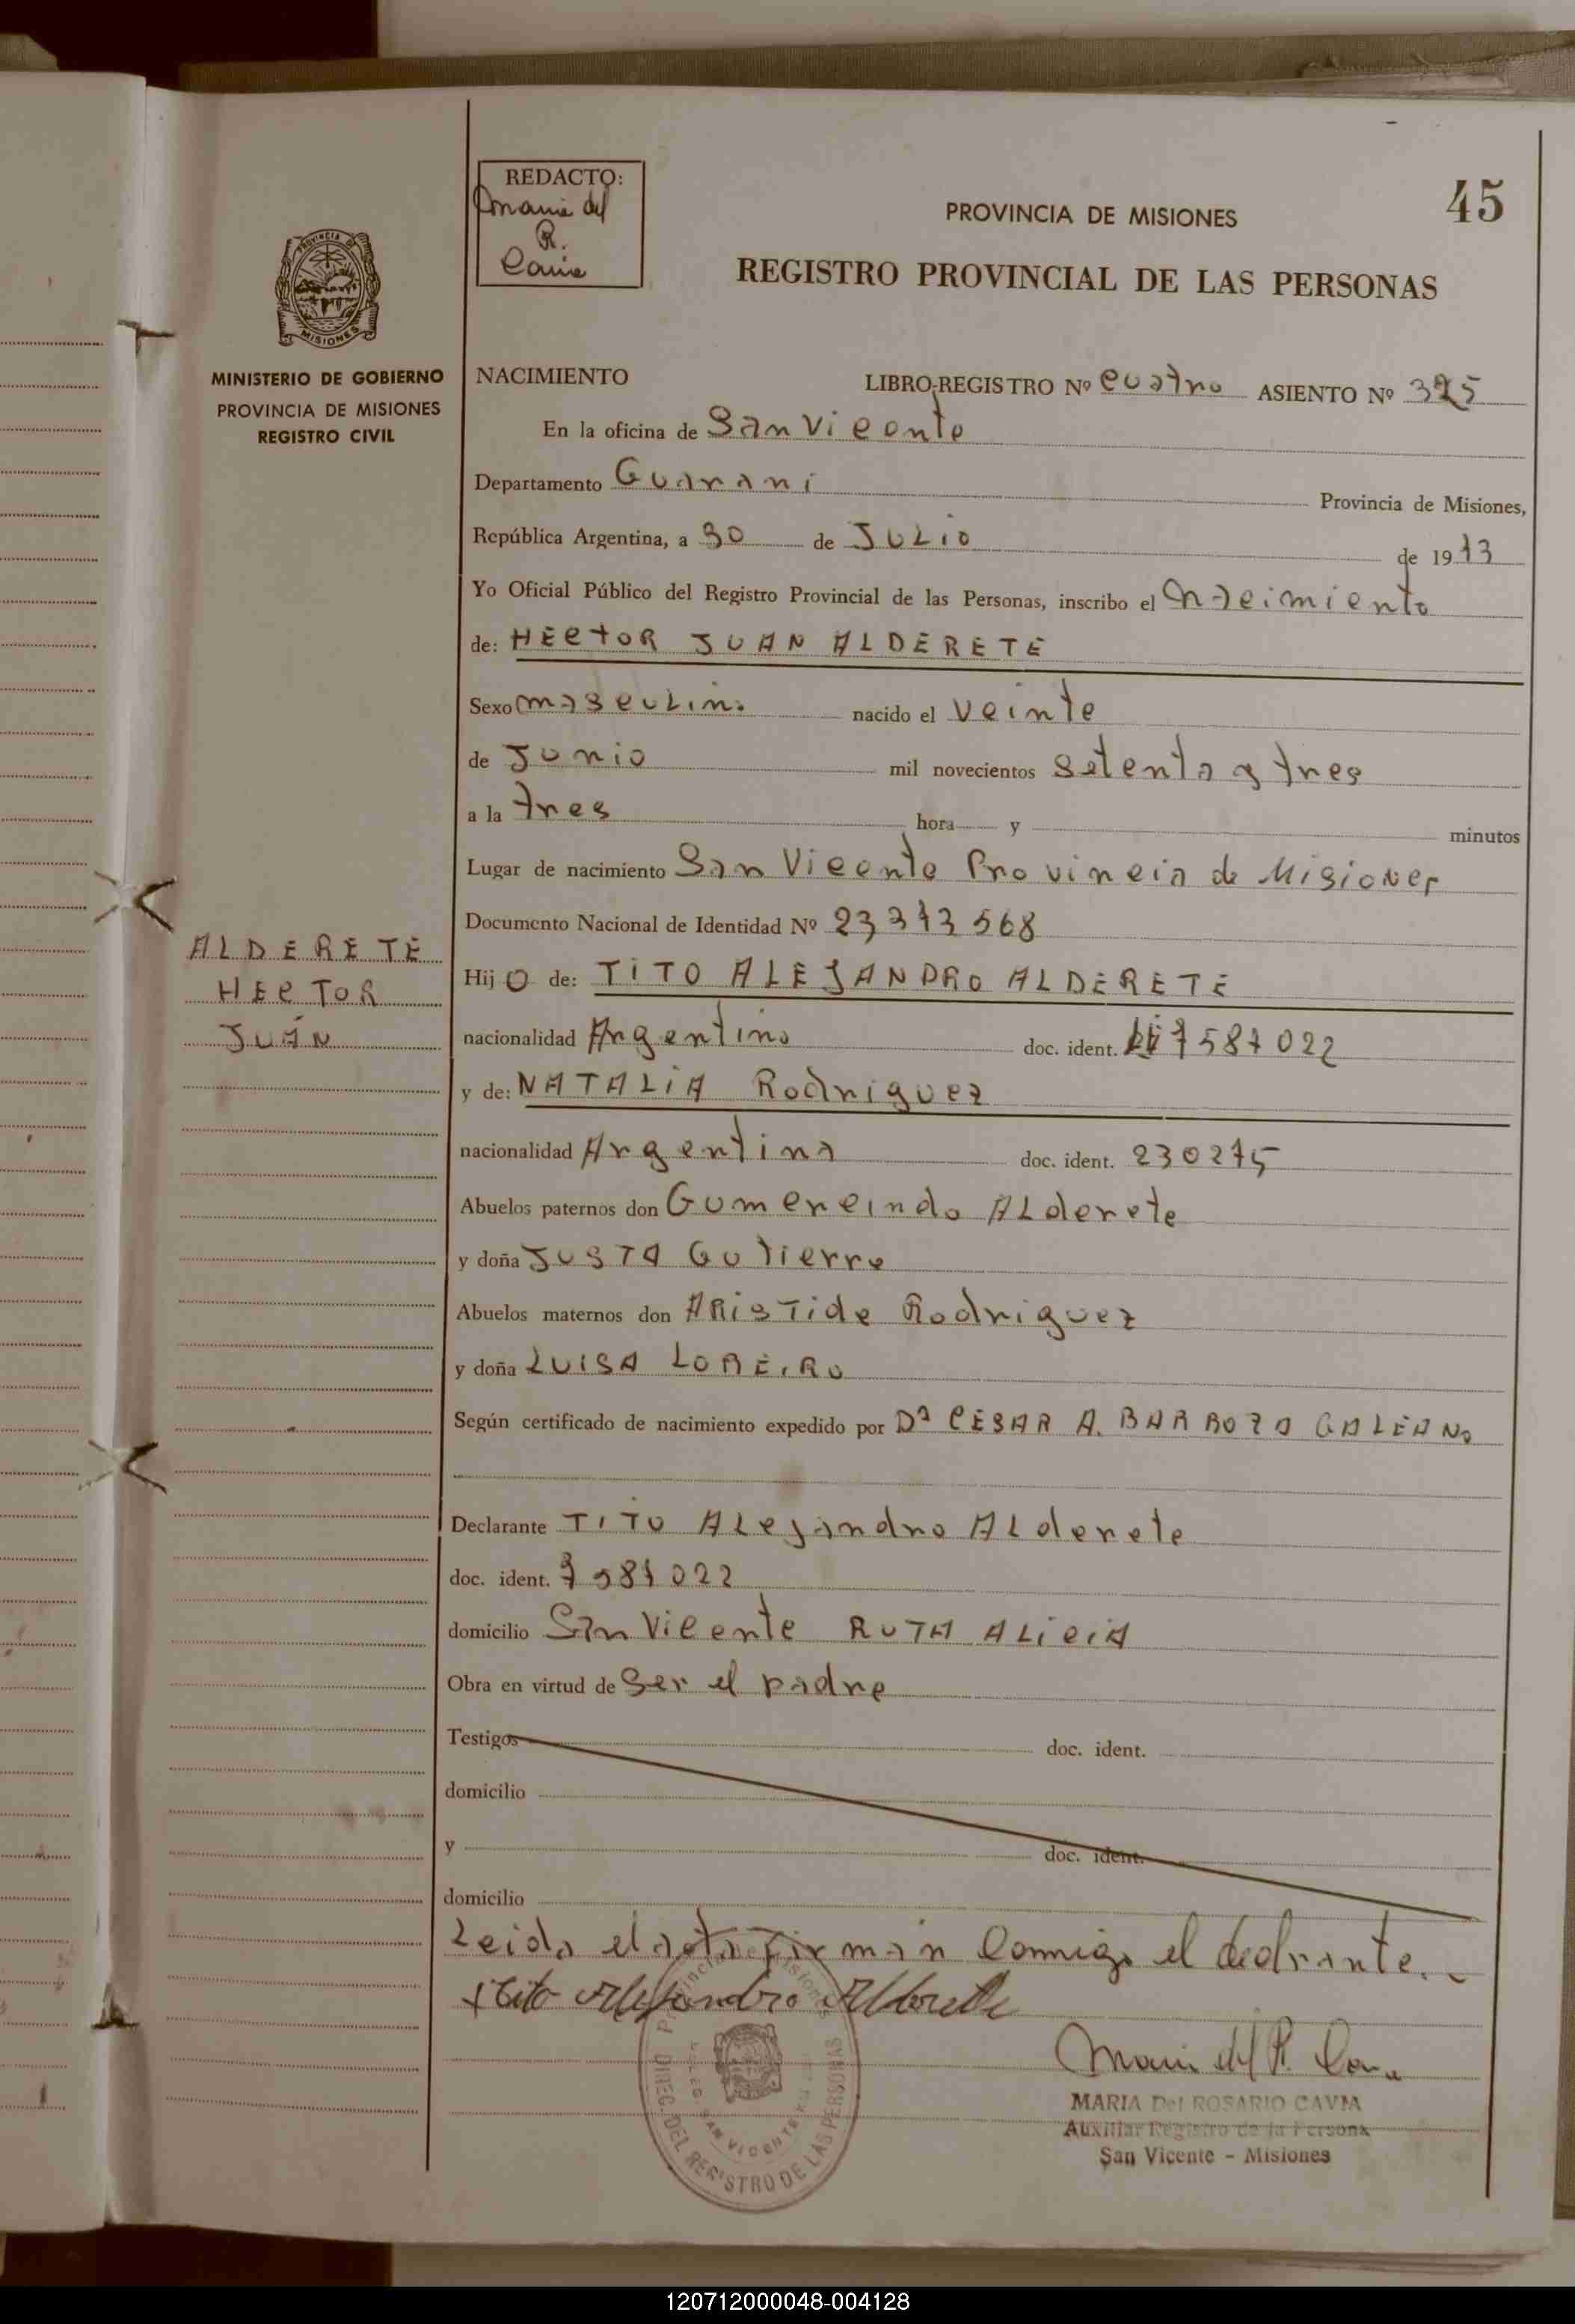 REDACTO:
Maria del
R.
Cavia
PROVINCIA DE MISIONES
45
REGISTRO PROVINCIAL DE LAS PERSONAS
PROVINCIA DE
MISIONES
MINISTERIO DE GOBIERNO
PROVINCIA DE MISIONES
REGISTRO CIVIL
NACIMIENTO LIBRO-REGISTRO Nº cuatro ASIENTO Nº 375
En la oficina de San Vicente
Departamento Guarani Provincia de Misiones,
República Argentina, a 30 de JULio de 1973
Yo Oficial Público del Registro Provincial de las Personas, inscribo el nacimiento
de: HEcToR JUAN ALDERETE
Sexo masculino nacido el veinte
de Junio mil novecientos setenta y tres
a la tres hora y minutos
Lugar de nacimiento San Vicente Provincia de Misiones
Documento Nacional de Identidad Nº 23,373568
ALDERETE
HEcToR
JUAN
Hijo de: TiTO ALEJANDRO ALDERETE
nacionalidad Argentino doc. ident. 7587022
y de: NATALiA Rodriguez
nacionalidad Argentina doc. ident. 230275
Abuelos paternos don Gumercindo ALderete
y doña JUSTA Gutierre
Abuelos maternos don ARisTide Rodriguez
y doña LUISA LOREiRO
Según certificado de nacimiento expedido por Dª CESAR A. BARROZO GALEANo
Declarante TITO ALejandro ALderete
doc. ident. 7587022
domicilio San Vicente RUTA ALiciA
Obra en virtud de ser el padre
Testigos doc. ident.
domicilio
y doc. ident.
domicilio
Leida el acta firman conmigo el declarante.-
Tito Alejandro Alderete
Maria del R. Cavia
MARIA Del ROSARIO CAVIA
Auxiliar Registro de la Persona
San Vicente - Misiones
Provincia de Misiones
DIREC. DEL REGISTRO DE LAS PERSONAS
SAN VICENTE
120712000048-004128